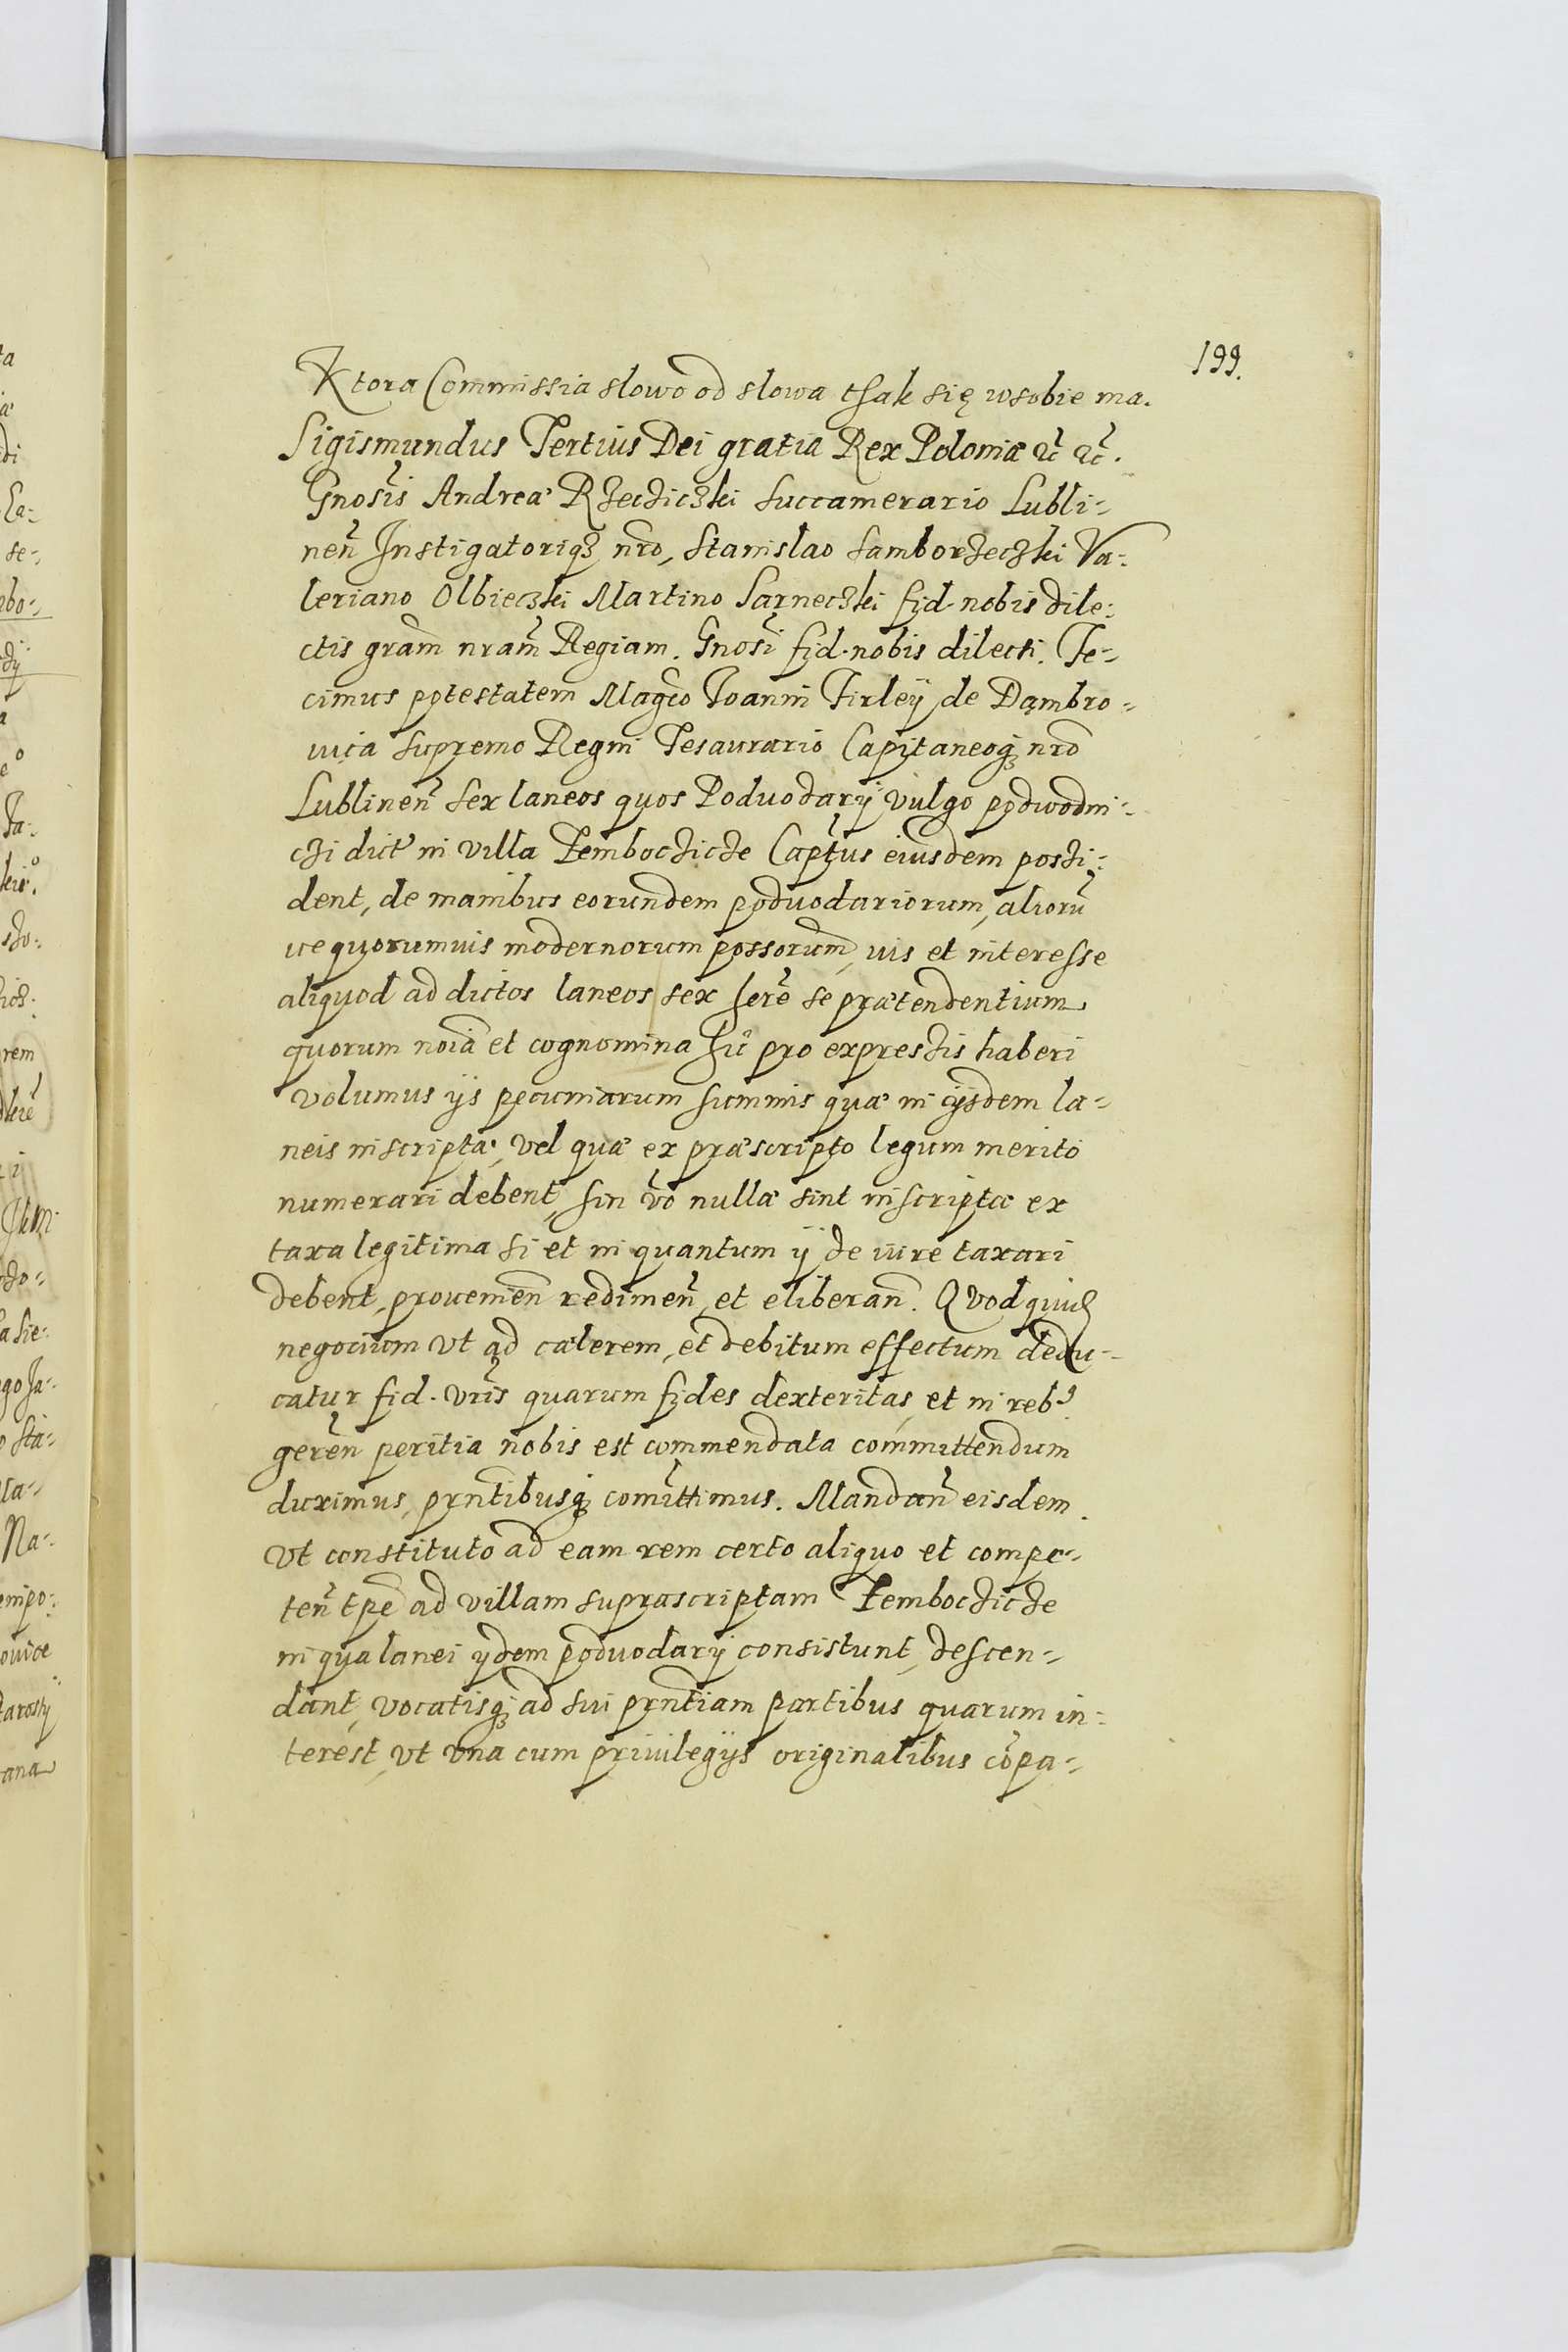 199.
Ktora Commissia slowo od slowa thak się wsobie ma.
Sigismundus Tertius Dei gratia Rex Poloniæ ac̃ ac̃.
Gnosis̃ Andreæ Rzecziczki Succamerario Lubli-
nen̄ Instigatoriqȝ nrō, Stanislao Samborzeczki Va-
leriano Olbieczki Martino Sarneczki fid. nobis dile-
ctis gram̄ nram̄ Regiam. Gnosĩ fid. nobis dilecti. Fe-
cimus potestatem Magco Joanni Firleÿ de Dambro-
uica supremo Regni Tesaurario Capitaneoqȝ nrō
Lublinen̄ sex laneos quos Poduodarÿ vulgo podwodni-
czi dict̃ in villa Pemboczicze Capt̃us eiusdem poszi-
dent, de manibus eorundem poduodariorum, aliorũ
ue quorumuis modernorum possorum̄, uis et interesse
aliquod ad dictos laneos sex herē se prætendentium
quorum noia᷃ et cognomina hic̃ pro expreszis haberi
volumus ijs pecuniarum summis quæ in ijsdem la-
neis inscriptæ, vel quæ ex præscripto legum merito
numerari debent, sin vo᷃ nullæ sint inscriptæ ex
taxa legitima si et in quantum ÿ de iure taxari
debent, prouenien̄ redimen̄, et eliberan̄. Quod quid
negocium vt ad cælerem, et debitum effectum dedu-
catur fid. vrīs quarum fides dexteritas, et in rebꝰ
geren̄ peritia nobis est commendata committendum
duximus, prn̄tibusqȝ comīttimus. Mandan̄ eisdem.
Vt constituto ad eam rem certo aliquo et compe-
ten̄ tpe᷃ ad villam suprascriptam Pemboczicze
in qua lanei ÿdem poduodarÿ consistunt, descen-
dant, vocatisqȝ ad sui prn̄tiam partibus quarum in-
terest, vt vna cum priuilegijs originalibus co᷃pa-